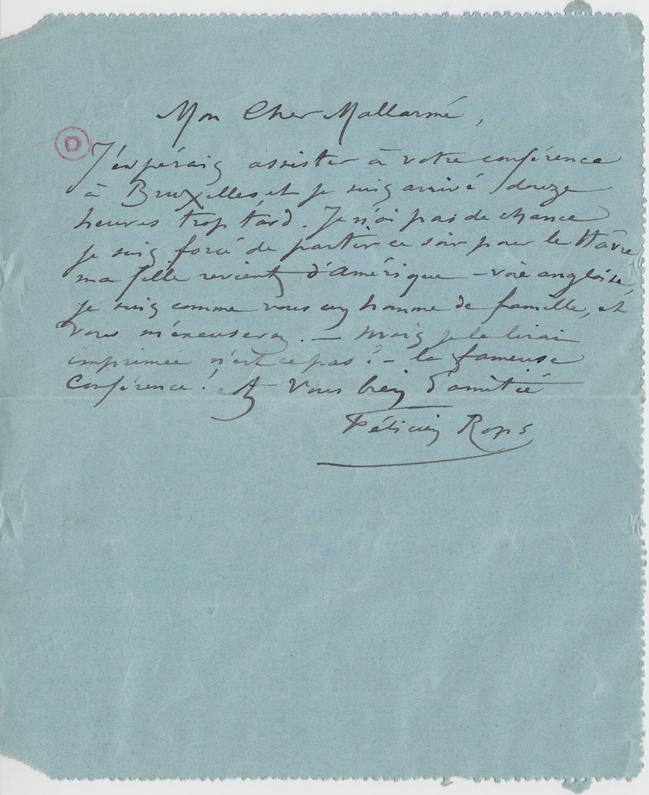 Mon Cher Mallarmé,
D
J'éspérais assister à votre conférence
à Bruxelles et je suis arrivé douze
heures trop tard. Je n'ai pas de chance
je suis forcé de partir ce soir pour le Hâvre
ma fille revient d'Amérique – voie anglaise,
je suis comme vous un homme de famille, et
vous m'excuserez. – Mais je la lirai
imprimée n'est ce pas? – la fameuse
Conférence! A vous bien d'amitié
Félicien Rops